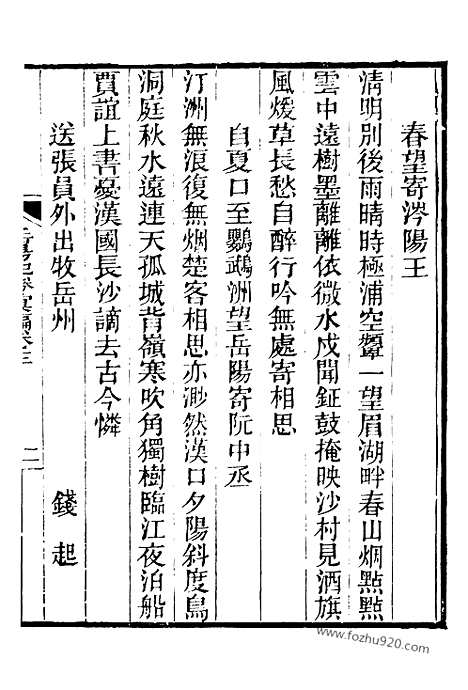 春望寄涔陽王
清明別後雨晴時極浦空顰一望眉湖畔春山烟點點
雲中遠樹墨離離依微水戍聞鉦鼓掩映沙村見酒旗
風煖草長愁自醉行吟無處寄相思
自夏口至鸚鵡洲望岳陽寄阮中丞
汀洲無浪復無烟楚客相思亦渺然漢口夕陽斜度鳥
洞庭秋水遠連天孤城背嶺寒吹角獨樹臨江夜泊船
賈誼上書憂漢國長沙謫去古今憐
送張員外出牧岳州 錢起
卷三 二
www.fozhu920.com